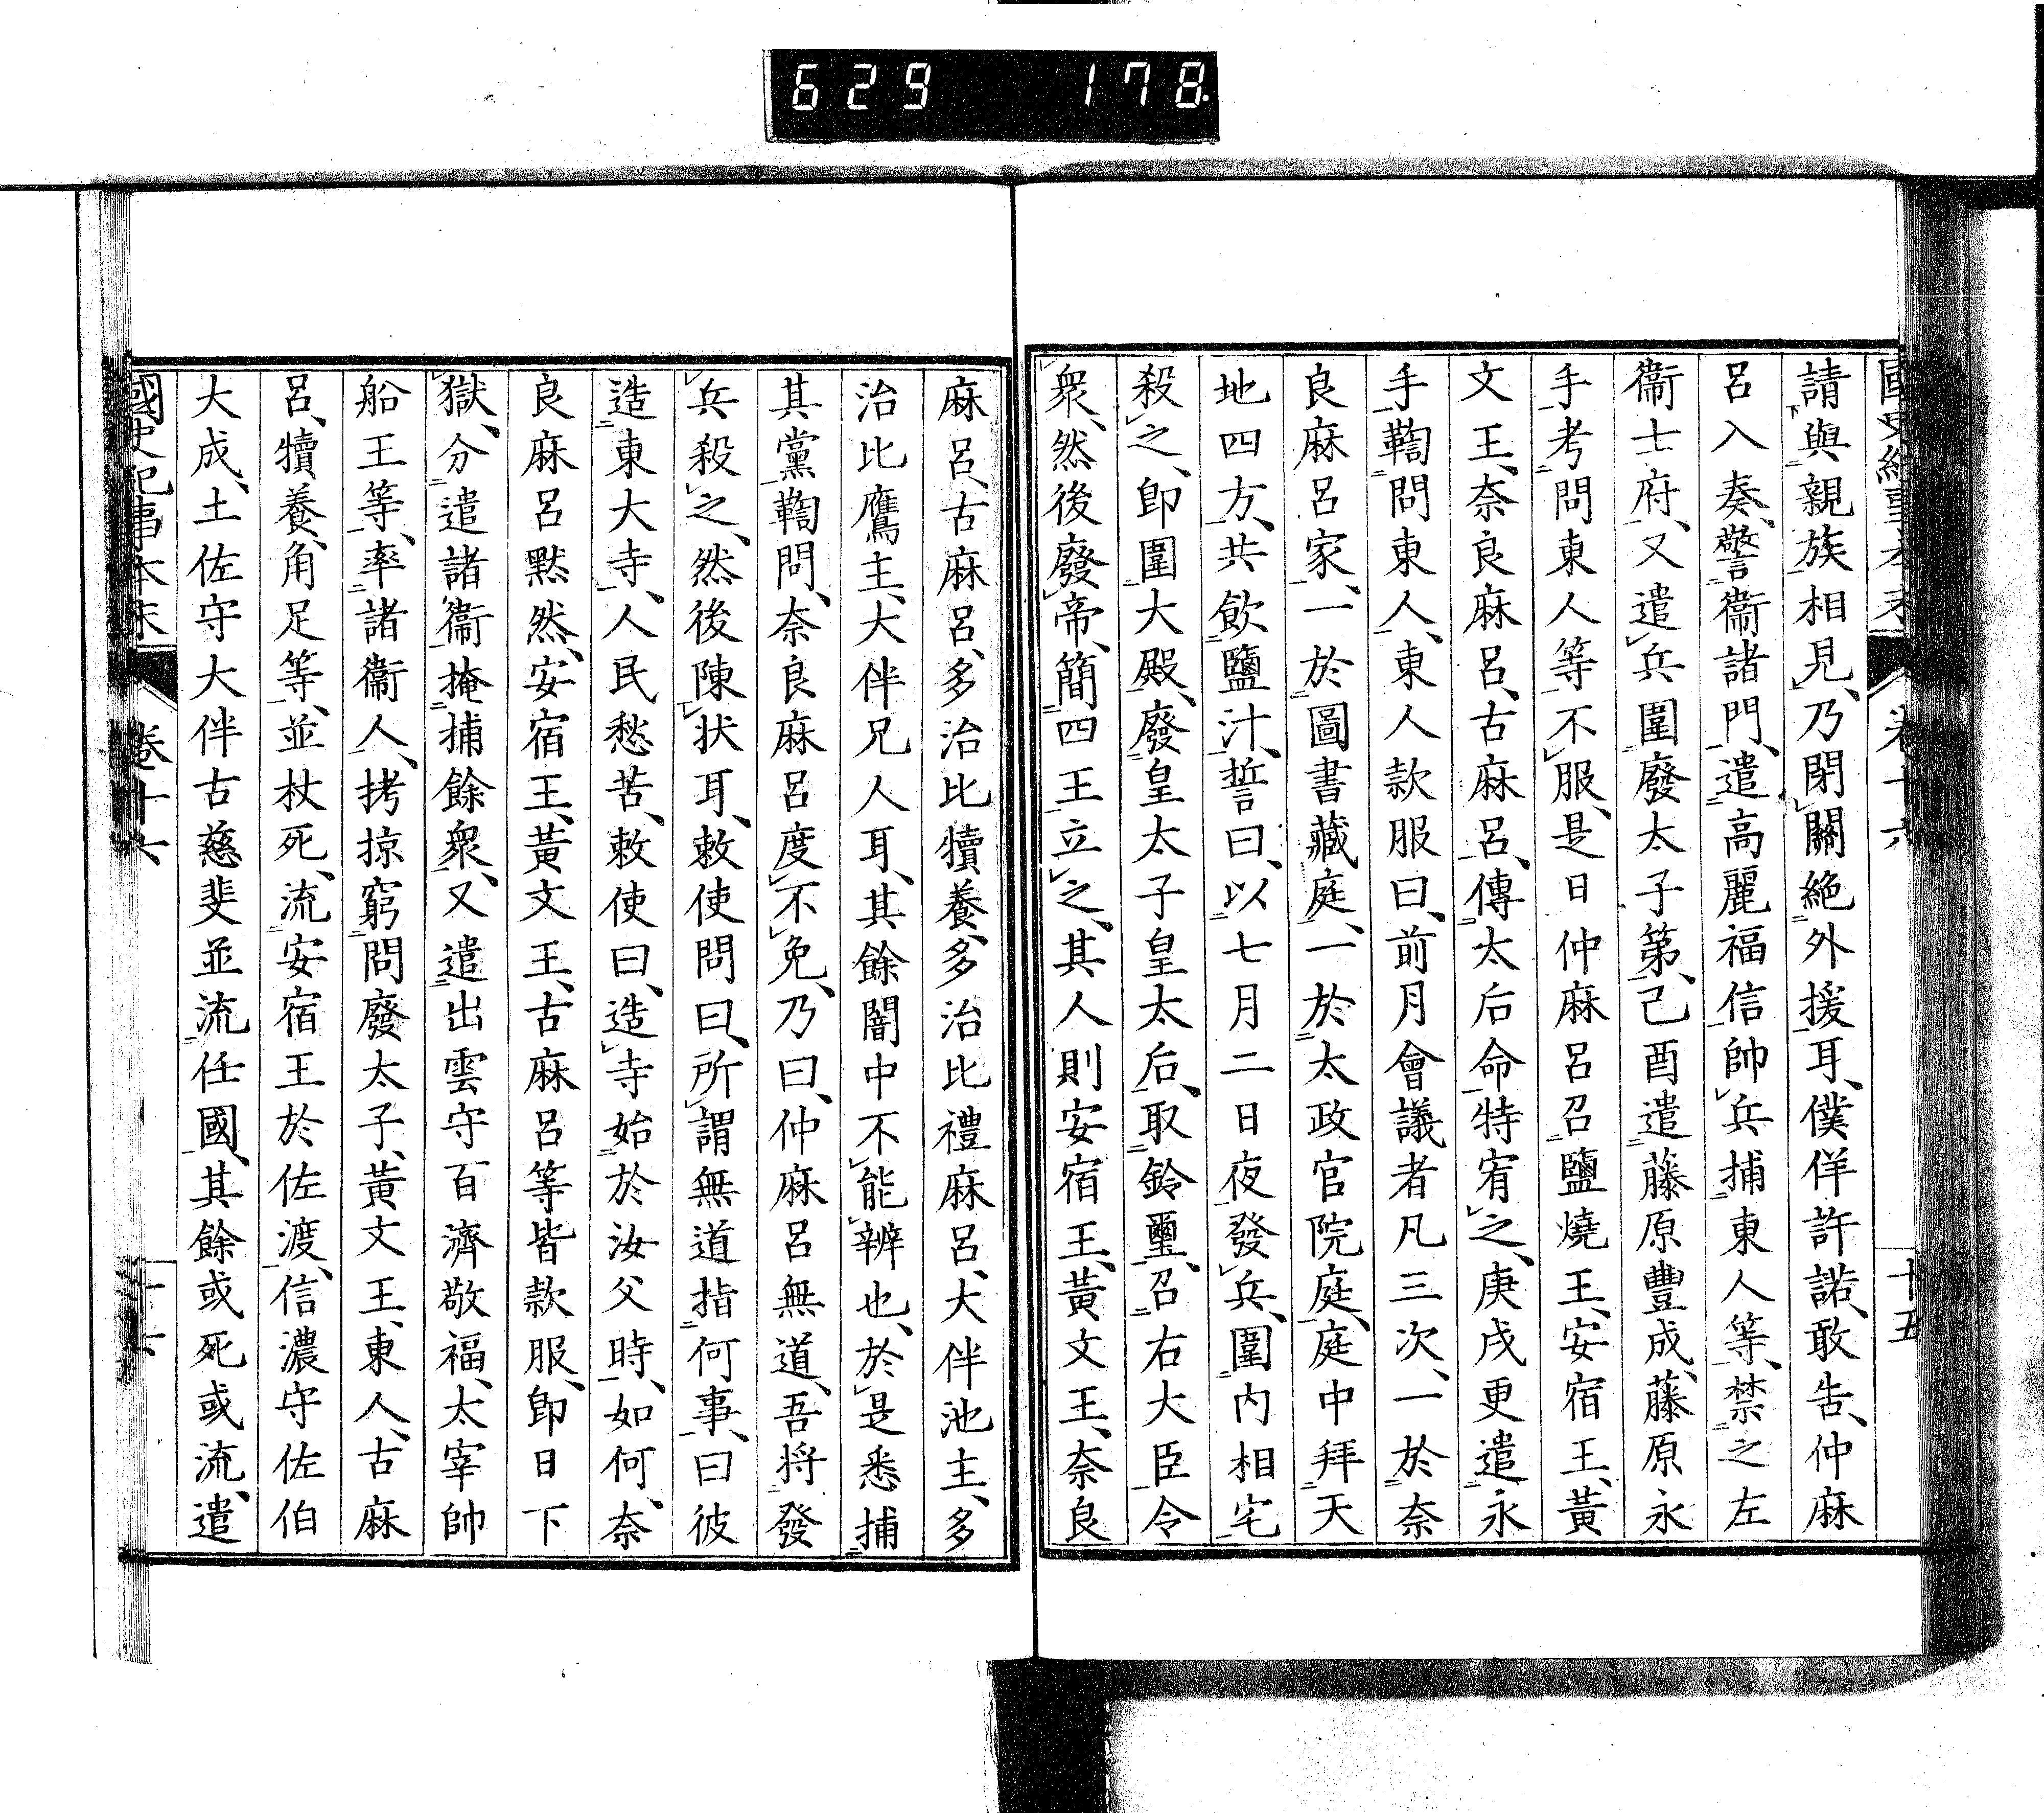 629 178
國史紀事本末 卷十六 十五
請與親族相見、乃閉關絕外援耳、僕佯許諾、敢告、仲麻
呂入奏、警衞諸門、遣高麗福信帥兵捕東人等、禁之左
衞士府、又遣兵圍廢太子第、己酉遣藤原豐成、藤原永
手考問東人等不服、是日仲麻呂召鹽燒王、安宿王、黃
文王、奈良麻呂、古麻呂、傳太后命特宥之、庚戌更遣永
手鞫問東人、東人款服曰、前月會議者凡三次、一於奈
良麻呂家、一於圖書藏庭、一於太政官院庭、庭中拜天
地四方、共飲鹽汁、誓曰、以七月二日夜發兵、圍內相宅
殺之、卽圍大殿、廢皇太子皇太后、取鈴璽、召右大臣令
衆、然後廢帝、簡四王立之、其人則安宿王、黃文王、奈良
麻呂、古麻呂、多治比犢養、多治比禮麻呂、大伴池主、多
治比鷹主、大伴兄人耳、其餘闇中不能辨也、於是悉捕
其黨鞫問、奈良麻呂度不免、乃曰、仲麻呂無道、吾將發
兵殺之、然後陳狀耳、敕使問曰、所謂無道指何事、曰彼
造東大寺、人民愁苦、敕使曰、造寺始於汝父時、如何、奈
良麻呂默然、安宿王、黃文王、古麻呂等皆款服、卽日下
獄、分遣諸衞掩捕餘衆、又遣出雲守百濟敬福、太宰帥
船王等、率諸衞人、拷掠窮問廢太子、黃文王、東人、古麻
呂、犢養、角足等、並杖死、流安宿王於佐渡、信濃守佐伯
大成、土佐守大伴古慈斐並流任國、其餘或死或流、遣
國史紀事本末 卷十六